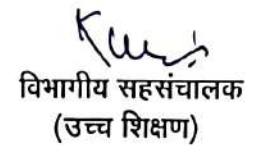 विभागीय सहसंचालक
(उच्च शिक्षण)